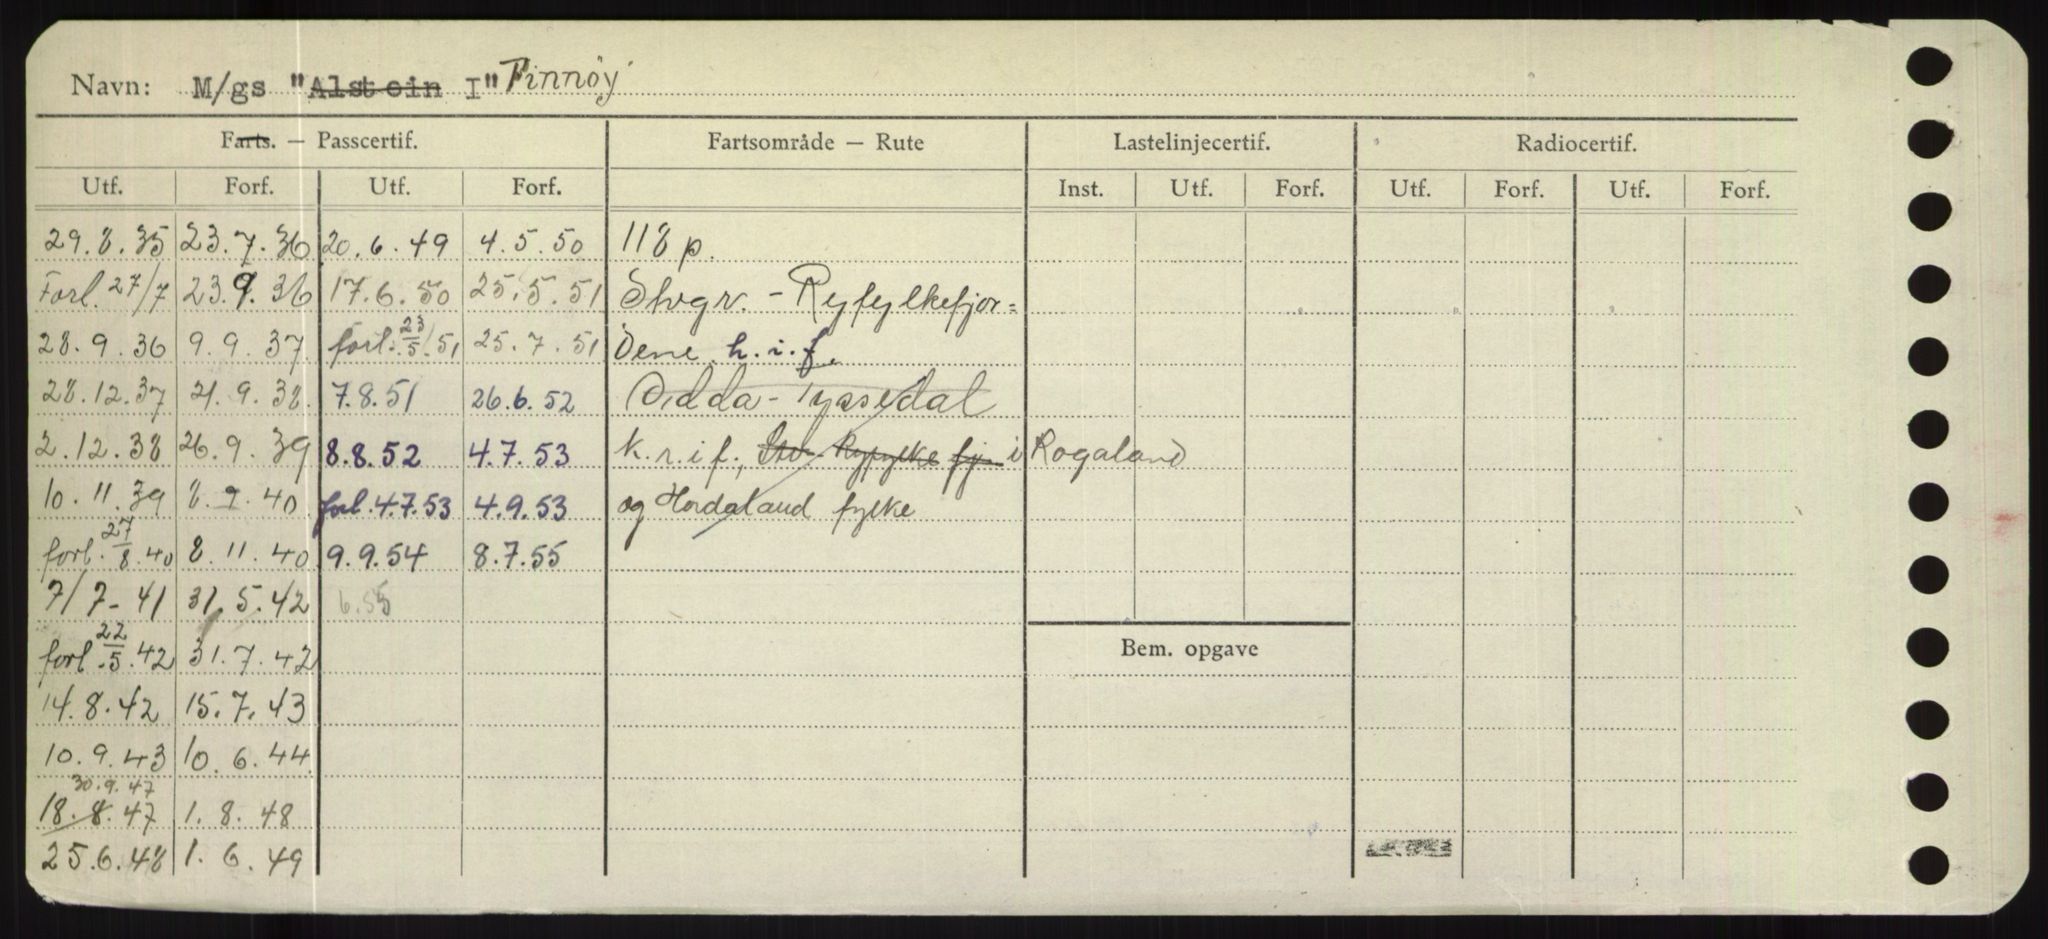 Navn: M/gs "Alstein I" Finnöy
Farts. — Passcertif. Fartsområde — Rute Lastelinjecertif. Radiocertif.
Utf. Forf. Utf. Forf. Inst. Utf. Forf. Utf. Forf. Utf. Forf.
29.8.35 23.7.36 20.6.49 4.5.50 118 p.
Forl. 27/7 23.9.36 17.6.50 25.5.51 Stvgr. - Ryfylkefjor=
28.9.36 9.9.37 forl. 23/5.51 25.7.51 dene h.i.f.
28.12.37 21.9.38 7.8.51 26.6.52 Odda - Tyssedal
2.12.38 26.9.39 8.8.52 4.7.53 k.r.i f., Stv. Ryfylke fj. i Rogaland
10.11.39 8.9.40 forl. 4.7.53 4.9.53 og Hordaland fylke
forl. 27/8.40 8.11.40 9.9.54 8.7.55
7/7-41 31.5.42 6.55
forl. 22/5.42 31.7.42 Bem. opgave
14.8.42 15.7.43
10.9.43 10.6.44
30.9.47
18.8.47 1.8.48
25.6.48 1.6.49